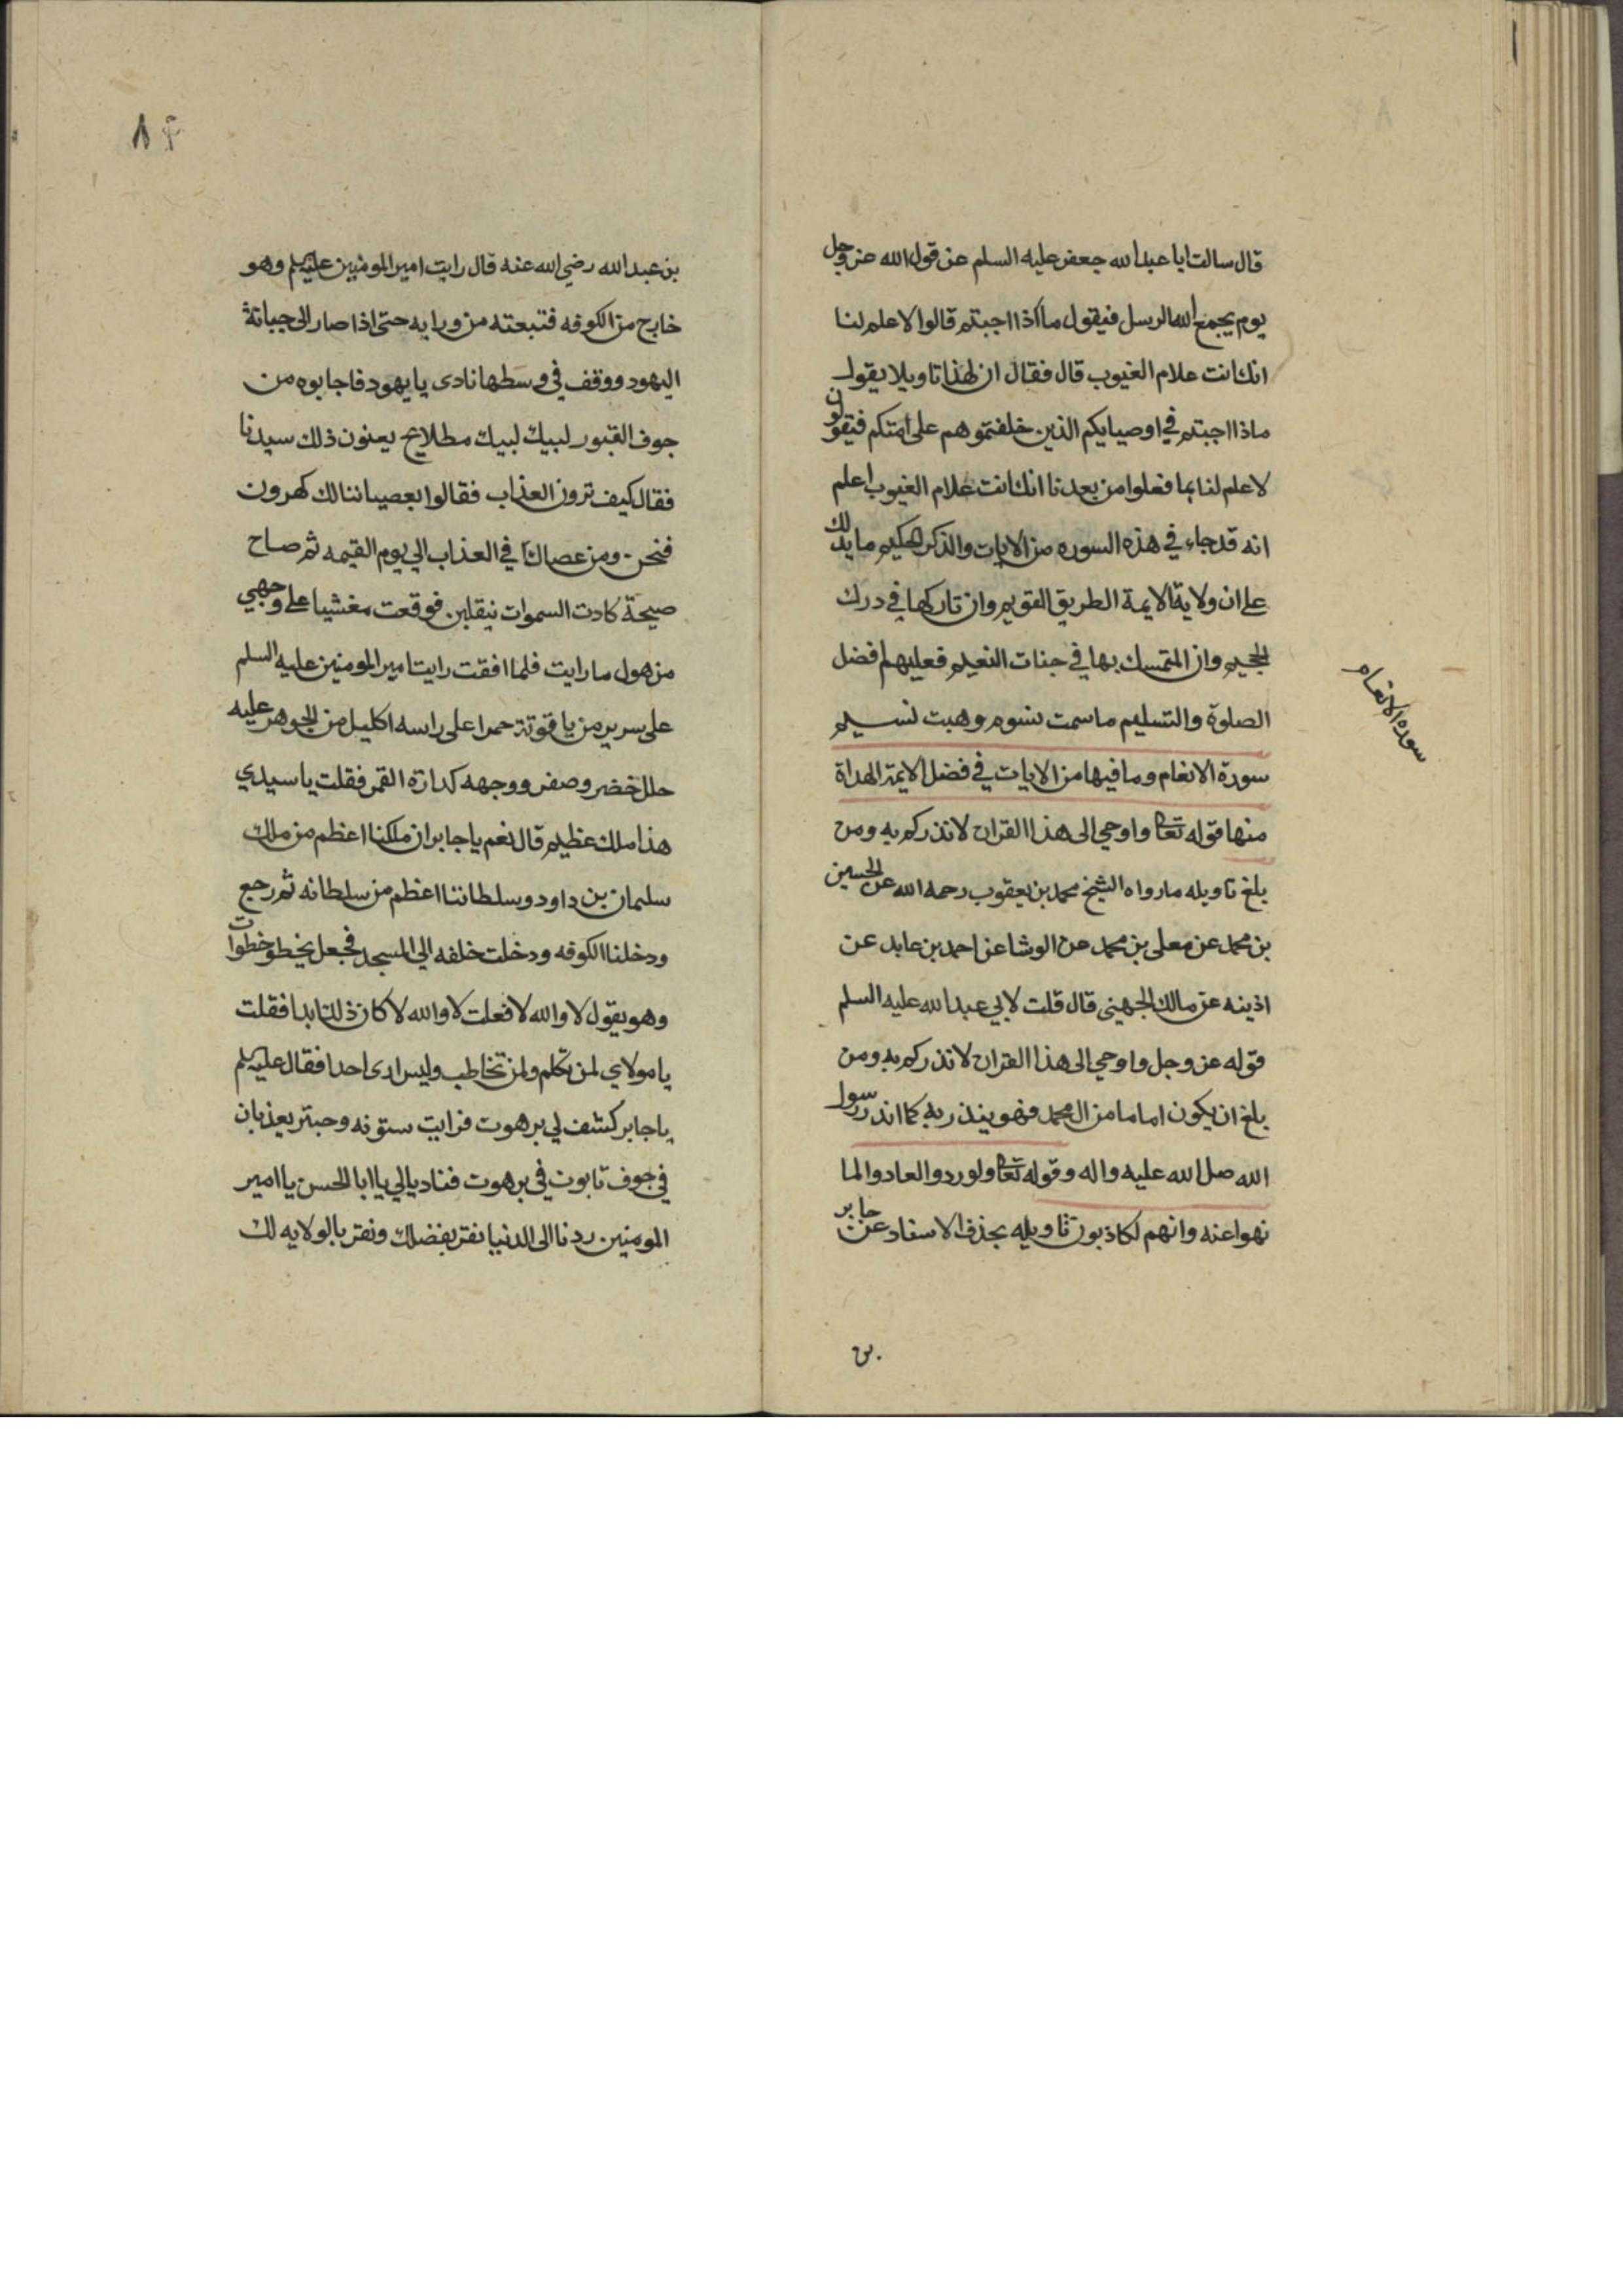 قال سالت ابا عبد الله جعفر عليه السلم عن قول الله عز وجل
يوم يجمع الله الرسل فيقول ماذا اجبتم قالوا لا علم لنا
انك انت علام الغيوب قال فقال ان لهذا تاويلا يقول
ماذا اجبتم في اوصيايكم الذين خلفتموهم على امتكم فيقولون
لا علم لنا بما فعلوا من بعدنا انك انت علام الغيوب اعلم
انه قد جاء في هذه السوره من الايات والذكر الحكيم ما يدلك
على ان ولاية الايمة الطريق القويم وان تاركها في درك
الجحيم وان المتمسك بها في جنات النعيم فعليهم افضل
الصلوة والتسليم ما سمت نسوم وهبت نسيم
سورة الانعام وما فيها من الايات في فضل الايمة الهداة
منها قوله تعالى واوحي الى هذا القران لانذركم به ومن
بلغ تاويله ما رواه الشيخ محمد بن يعقوب رحمه الله عن الحسين
بن محمد عن معلى بن محمد عن الوشا عن احمد بن عايد عن
اذينه عن مالك الجهني قال قلت لابي عبد الله عليه السلم
قوله عز وجل واوحي الى هذا القران لانذركم به ومن
بلغ ان يكون اماما من ال محمد فهو ينذر به كما انذر رسول
الله صلى الله عليه واله وقوله تعالى ولو ردوا لعادوا لما
نهوا عنه وانهم لكاذبون تاويله بحذف الاسناد عن جابر
بن
سورة الانعام
٨٤
بن عبد الله رضي الله عنه قال رايت امير المومنين عليه السلم وهو
خارج من الكوفه فتبعته من ورايه حتى اذا صار الى جبانة
اليهود ووقف في وسطها نادى يا يهود فاجابوه من
جوف القبور لبيك لبيك مطلايح يعنون ذلك سيدنا
فقال كيف ترون العذاب فقالوا بعصياننا لك كهرون
فنحن ومن عصاك في العذاب الي يوم القيمه ثم صاح
صيحة كادت السموات ينقلبن فوقعت مغشيا على وجهي
من هول ما رايت فلما افقت رايت امير المومنين عليه السلم
على سرير من ياقوتة حمرا على راسه اكليل من الجوهر عليه
حلل خضر وصفر ووجهه كدارة القمر فقلت يا سيدي
هذا ملك عظيم قال نعم يا جابر ان ملكنا اعظم من ملك
سليمان بن داود وسلطاننا اعظم من سلطانه ثم رجع
ودخلنا الكوفه ودخلت خلفه الي المسجد فجعل يخطو خطوات
وهو يقول لا والله لا فعلت لا والله لا كان ذلك ابدا فقلت
يا مولاي لمن تكلم ولمن تخاطب وليس ارى احدا فقال عليه السلم
يا جابر كشف لي برهوت فرايت ستونه وحبتر يعذبان
في جوف تابوت في برهوت فنادياني يا ابا الحسن يا امير
المومنين ردنا الى الدنيا نقر بفضلك ونقر بالولايه لك